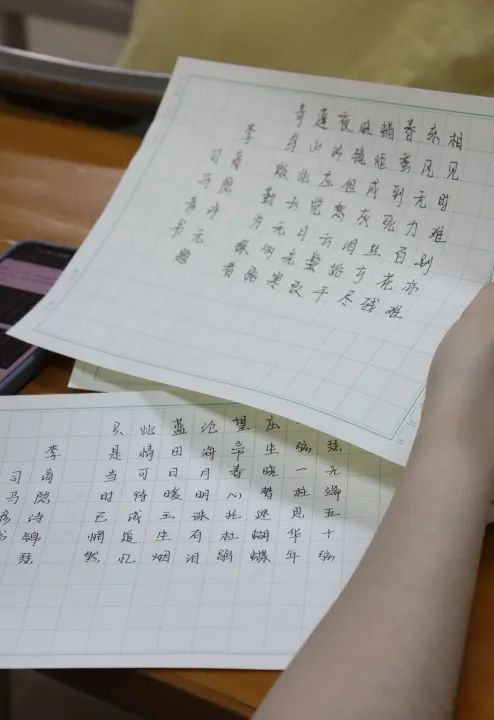 相见时难别亦难
东风无力百花残
春蚕到死丝方尽
蜡炬成灰泪始干
晓镜但愁云鬓改
夜吟应觉月光寒
蓬山此去无多路
青鸟殷勤为探看
李商隐诗无题
司马彦书
瑟无端五十弦
弦一柱思华年
庄生晓梦迷蝴蝶
望帝春心托杜鹃
沧海月明珠有泪
蓝田日暖玉生烟
此情可待成追忆
只是当时已惘然
李商隐诗锦瑟
司马彦书